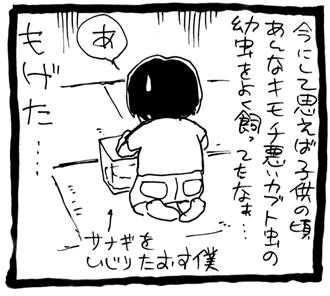 今にして思えば子供の頃
あんなキモチ悪いカブト虫の
幼虫をよく飼ってたなぁ…
あ
もげた…
サナギを
いじりたおす僕